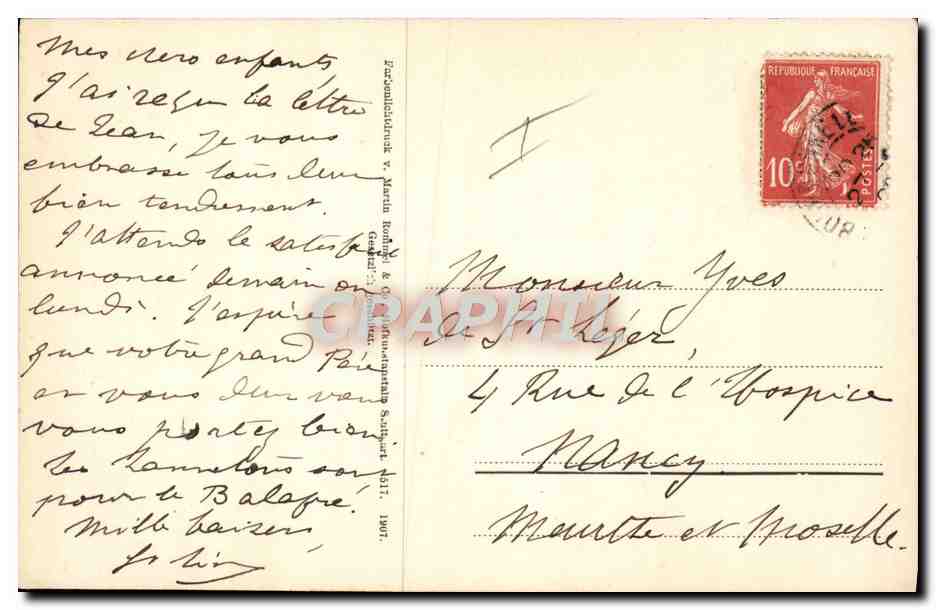 Mes chers enfants
J'ai reçu la lettre
de Jean, je vous
embrasse tous deux
bien tendrement.
J'attends le
annoncé demain ou
lundi. J'espère
que votre grand Père
et vous deux vous
vous portez bien.
Les sont
pour le Balafré.
Mille baisers
Farbenlichtdruck v. Martin Rommel & Co., Hofkunstanstalt Stuttgart. 1907.
Gesetzlich geschützt.
I
REPUBLIQUE FRANÇAISE
10c
POSTES
Monsieur Yves
de St Léger,
4 Rue de l'Hospice
Nancy
Meurthe et Moselle.
CPAPHIL